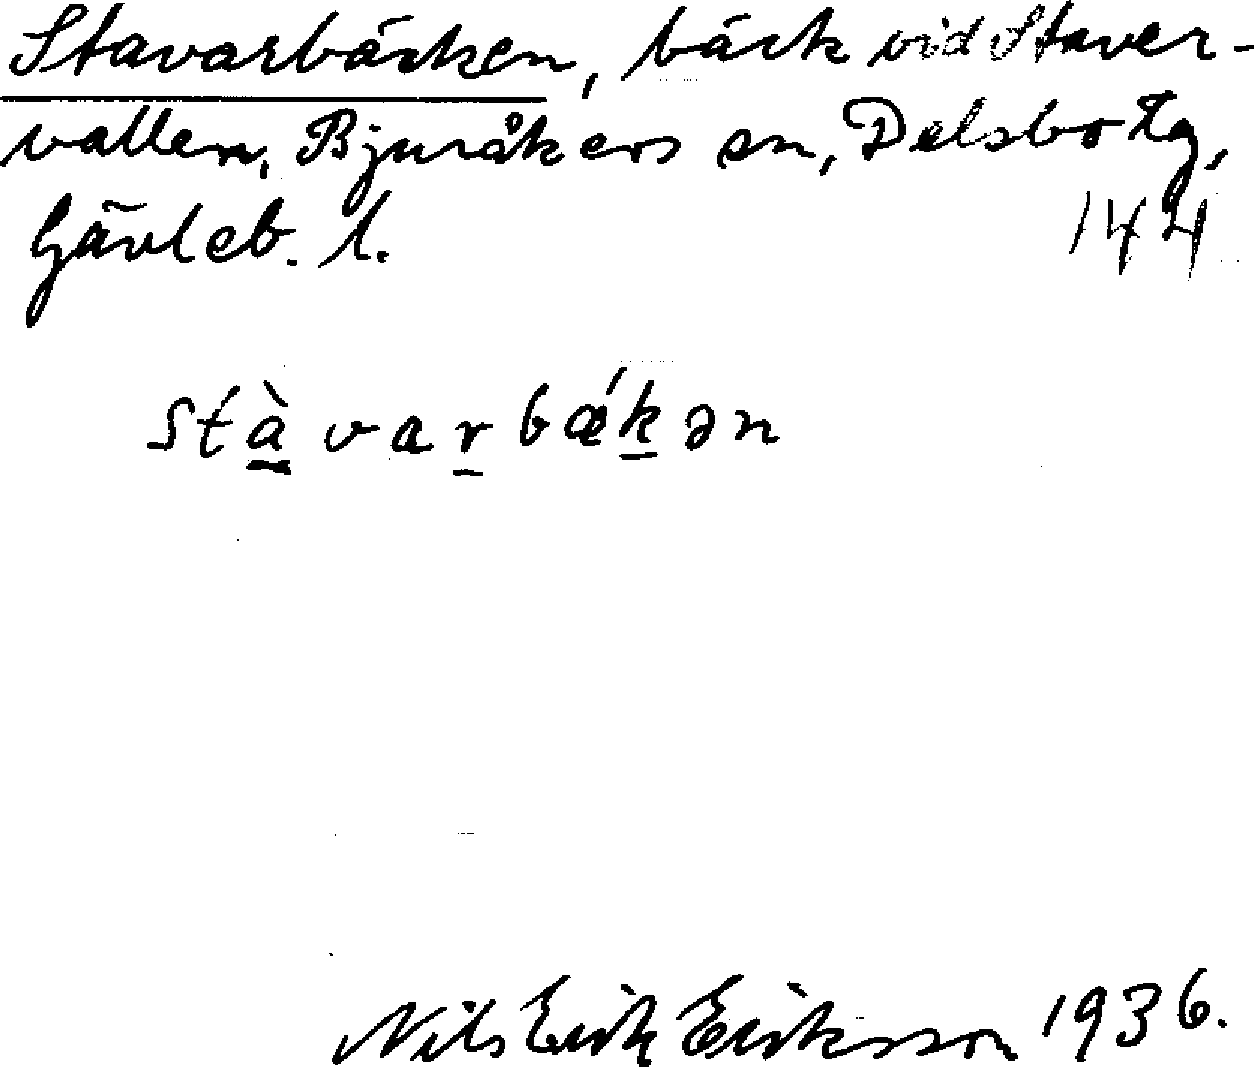 Stavarbäcken, bäck vid Staver-
vallen, Bjuråkers sn, Delsbo tg,
Gävleb. l. 144
stà̱vaṟbǽḵən
Nils Erik Eriksson 1936.